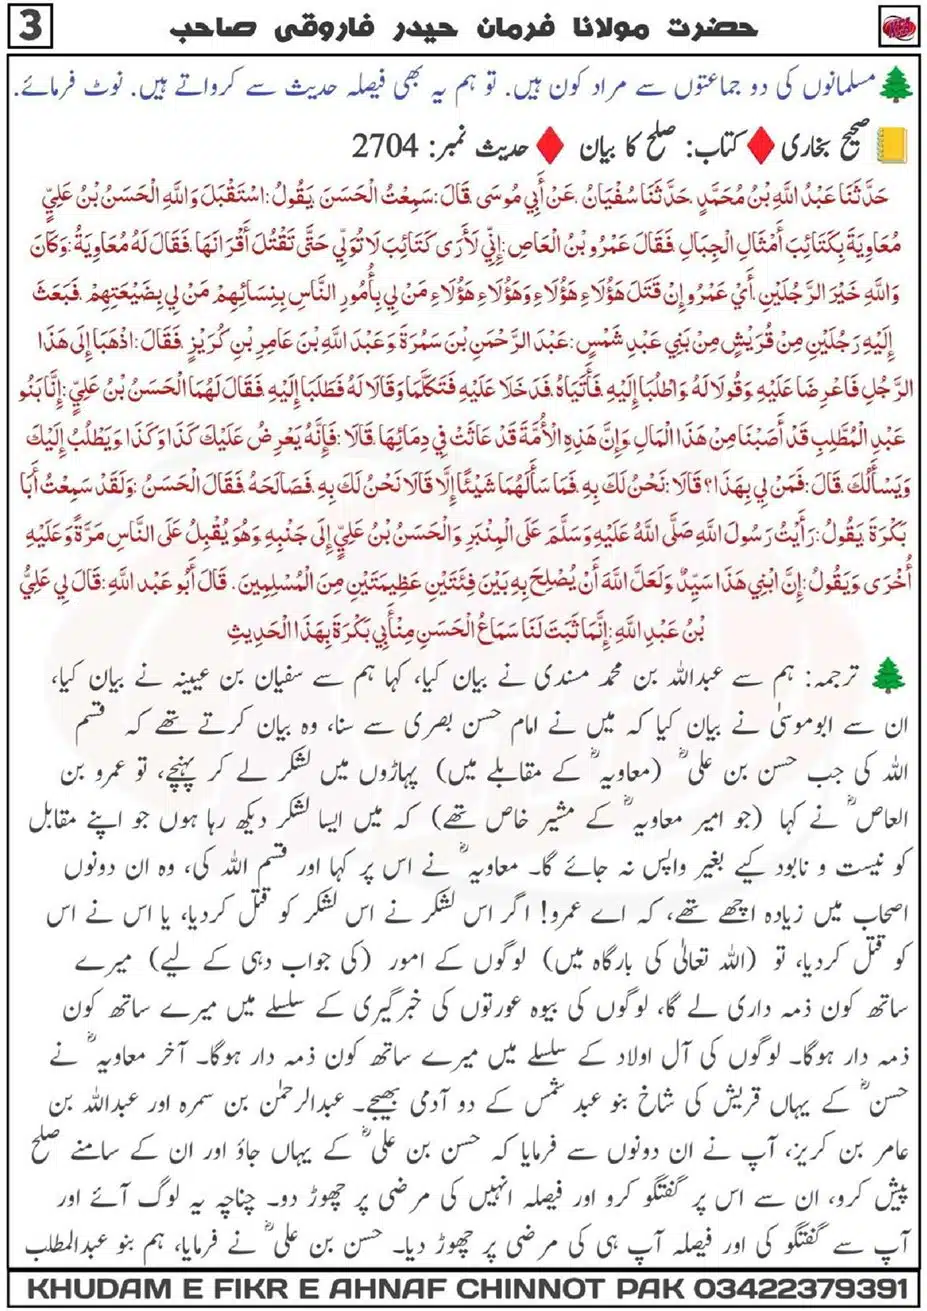 3
حضرت مولانا فرمان حیدر فاروقی صاحب
مسلمانوں کی دو جماعتوں سے مراد کون ہیں. تو ہم یہ بھی فیصلہ حدیث سے کرواتے ہیں. نوٹ فرمائے.
صحیح بخاری ♦ کتاب: صلح کا بیان ♦ حدیث نمبر: 2704
حَدَّثَنَا عَبْدُ اللَّهِ بْنُ مُحَمَّدٍ ،حَدَّثَنَا سُفْيَانُ ،عَنْ أَبِي مُوسَى ،قَالَ:سَمِعْتُ الْحَسَنَ ،يَقُولُ:اسْتَقْبَلَ وَاللَّهِ الْحَسَنُ بْنُ عَلِيٍّ
مُعَاوِيَةَ بِكَتَائِبَ أَمْثَالِ الْجِبَالِ ،فَقَالَ عَمْرُو بْنُ الْعَاصِ:إِنِّي لَأَرَى كَتَائِبَ لَا تُوَلِّي حَتَّى تَقْتُلَ أَقْرَانَهَا،فَقَالَ لَهُ مُعَاوِيَةُ:وَكَانَ
وَاللَّهِ خَيْرَ الرَّجُلَيْنِ ،أَيْ عَمْرُو إِنْ قَتَلَ هَؤُلَاءِ هَؤُلَاءِ وَهَؤُلَاءِ هَؤُلَاءِ مَنْ لِي بِأُمُورِ النَّاسِ بِنِسَائِهِمْ مَنْ لِي بِضَيْعَتِهِمْ ،فَبَعَثَ
إِلَيْهِ رَجُلَيْنِ مِنْ قُرَيْشٍ مِنْ بَنِي عَبْدِ شَمْسٍ :عَبْدَ الرَّحْمَنِ بْنَ سَمُرَةَ وَعَبْدَ اللَّهِ بْنَ عَامِرِ بْنِ كُرَيْزٍ ،فَقَالَ:اذْهَبَا إِلَى هَذَا
الرَّجُلِ فَاعْرِضَا عَلَيْهِ وَقُولَا لَهُ وَاطْلُبَا إِلَيْهِ ،فَأَتَيَاهُ فَدَخَلَا عَلَيْهِ فَتَكَلَّمَا وَقَالَا لَهُ فَطَلَبَا إِلَيْهِ ،فَقَالَ لَهُمَا الْحَسَنُ بْنُ عَلِيٍّ:إِنَّا بَنُو
عَبْدِ الْمُطَّلِبِ قَدْ أَصَبْنَا مِنْ هَذَا الْمَالِ ،وَإِنَّ هَذِهِ الْأُمَّةَ قَدْ عَاثَتْ فِي دِمَائِهَا،قَالَا :فَإِنَّهُ يَعْرِضُ عَلَيْكَ كَذَا وَكَذَا ،وَيَطْلُبُ إِلَيْكَ
وَيَسْأَلُكَ ،قَالَ:فَمَنْ لِي بِهَذَا؟قَالَا:نَحْنُ لَكَ بِهِ ،فَمَا سَأَلَهُمَا شَيْئًا إِلَّا قَالَا نَحْنُ لَكَ بِهِ ،فَصَالَحَهُ،فَقَالَ الْحَسَنُ:وَلَقَدْ سَمِعْتُ أَبَا
بَكْرَةَ ،يَقُولُ:رَأَيْتُ رَسُولَ اللَّهِ صَلَّى اللَّهُ عَلَيْهِ وَسَلَّمَ عَلَى الْمِنْبَرِ ،وَالْحَسَنُ بْنُ عَلِيٍّ إِلَى جَنْبِهِ،وَهُوَ يُقْبِلُ عَلَى النَّاسِ مَرَّةً وَعَلَيْهِ
أُخْرَى ،وَيَقُولُ:إِنَّ ابْنِي هَذَا سَيِّدٌ،وَلَعَلَّ اللَّهَ أَنْ يُصْلِحَ بِهِ بَيْنَ فِئَتَيْنِ عَظِيمَتَيْنِ مِنَ الْمُسْلِمِينَ. قَالَ أَبُو عَبْد اللَّهِ:قَالَ لِي عَلِيُّ
بْنُ عَبْدِ اللَّهِ:إِنَّمَا ثَبَتَ لَنَا سَمَاعُ الْحَسَنِ مِنْ أَبِي بَكْرَةَ بِهَذَا الْحَدِيثِ
ترجمہ: ہم سے عبداللہ بن محمد مسندی نے بیان کیا، کہا ہم سے سفیان بن عیینہ نے بیان کیا،
ان سے ابوموسیٰ نے بیان کیا کہ میں نے امام حسن بصری سے سنا، وہ بیان کرتے تھے کہ قسم
اللہ کی جب حسن بن علیؓ (معاویہؓ کے مقابلے میں) پہاڑوں میں لشکر لے کر پہنچے، تو عمرو بن
العاصؓ نے کہا (جو امیر معاویہؓ کے مشیر خاص تھے) کہ میں ایسا لشکر دیکھ رہا ہوں جو اپنے مقابل
کو نیست و نابود کیے بغیر واپس نہ جائے گا۔ معاویہؓ نے اس پر کہا اور قسم اللہ کی، وہ ان دونوں
اصحاب میں زیادہ اچھے تھے، کہ اے عمرو! اگر اس لشکر نے اس لشکر کو قتل کردیا، یا اس نے اس
کو قتل کردیا، تو (اللہ تعالیٰ کی بارگاہ میں) لوگوں کے امور (کی جواب دہی کے لیے) میرے
ساتھ کون ذمہ داری لے گا، لوگوں کی بیوہ عورتوں کی خبرگیری کے سلسلے میں میرے ساتھ کون
ذمہ دار ہوگا۔ لوگوں کی آل اولاد کے سلسلے میں میرے ساتھ کون ذمہ دار ہوگا۔ آخر معاویہؓ نے
حسنؓ کے یہاں قریش کی شاخ بنو عبد شمس کے دو آدمی بھیجے۔ عبدالرحمٰن بن سمرہ اور عبداللہ بن
عامر بن کریز، آپ نے ان دونوں سے فرمایا کہ حسن بن علیؓ کے یہاں جاؤ اور ان کے سامنے صلح
پیش کرو، ان سے اس پر گفتگو کرو اور فیصلہ انہیں کی مرضی پر چھوڑ دو۔ چناچہ یہ لوگ آئے اور
آپ سے گفتگو کی اور فیصلہ آپ ہی کی مرضی پر چھوڑ دیا۔ حسن بن علیؓ نے فرمایا، ہم بنو عبدالمطلب
KHUDAM E FIKR E AHNAF CHINNOT PAK 03422379391